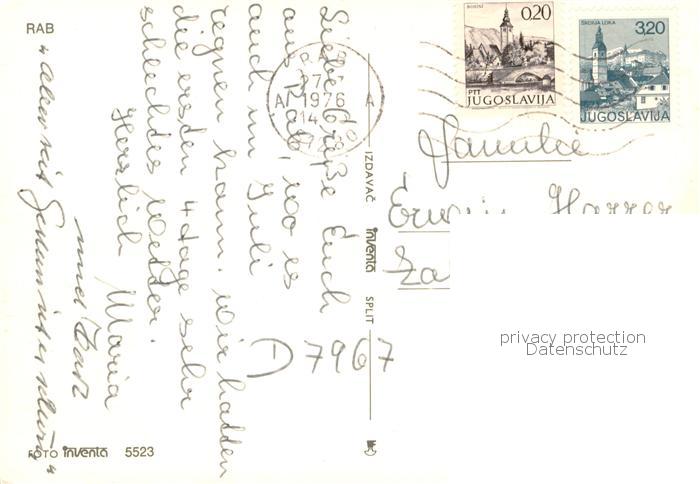 RAB
Liebe Grüße Euch
aus Rab, wo es
auch im Juli
regnen kann. Wir hatten
die ersten 4 Tage sehr
schlechtes Wetter.
Herzlich Maria
und
"aber mit
FOTO inventa 5523
IZDAVAČ inventa SPLIT
BOHINJ
0.20
PTT
JUGOSLAVIJA
ŠKOFJA LOKA
3,20
JUGOSLAVIJA
1976
14
Familie
Erwin Harrer
Za
D 7967
privacy protection
Datenschutz